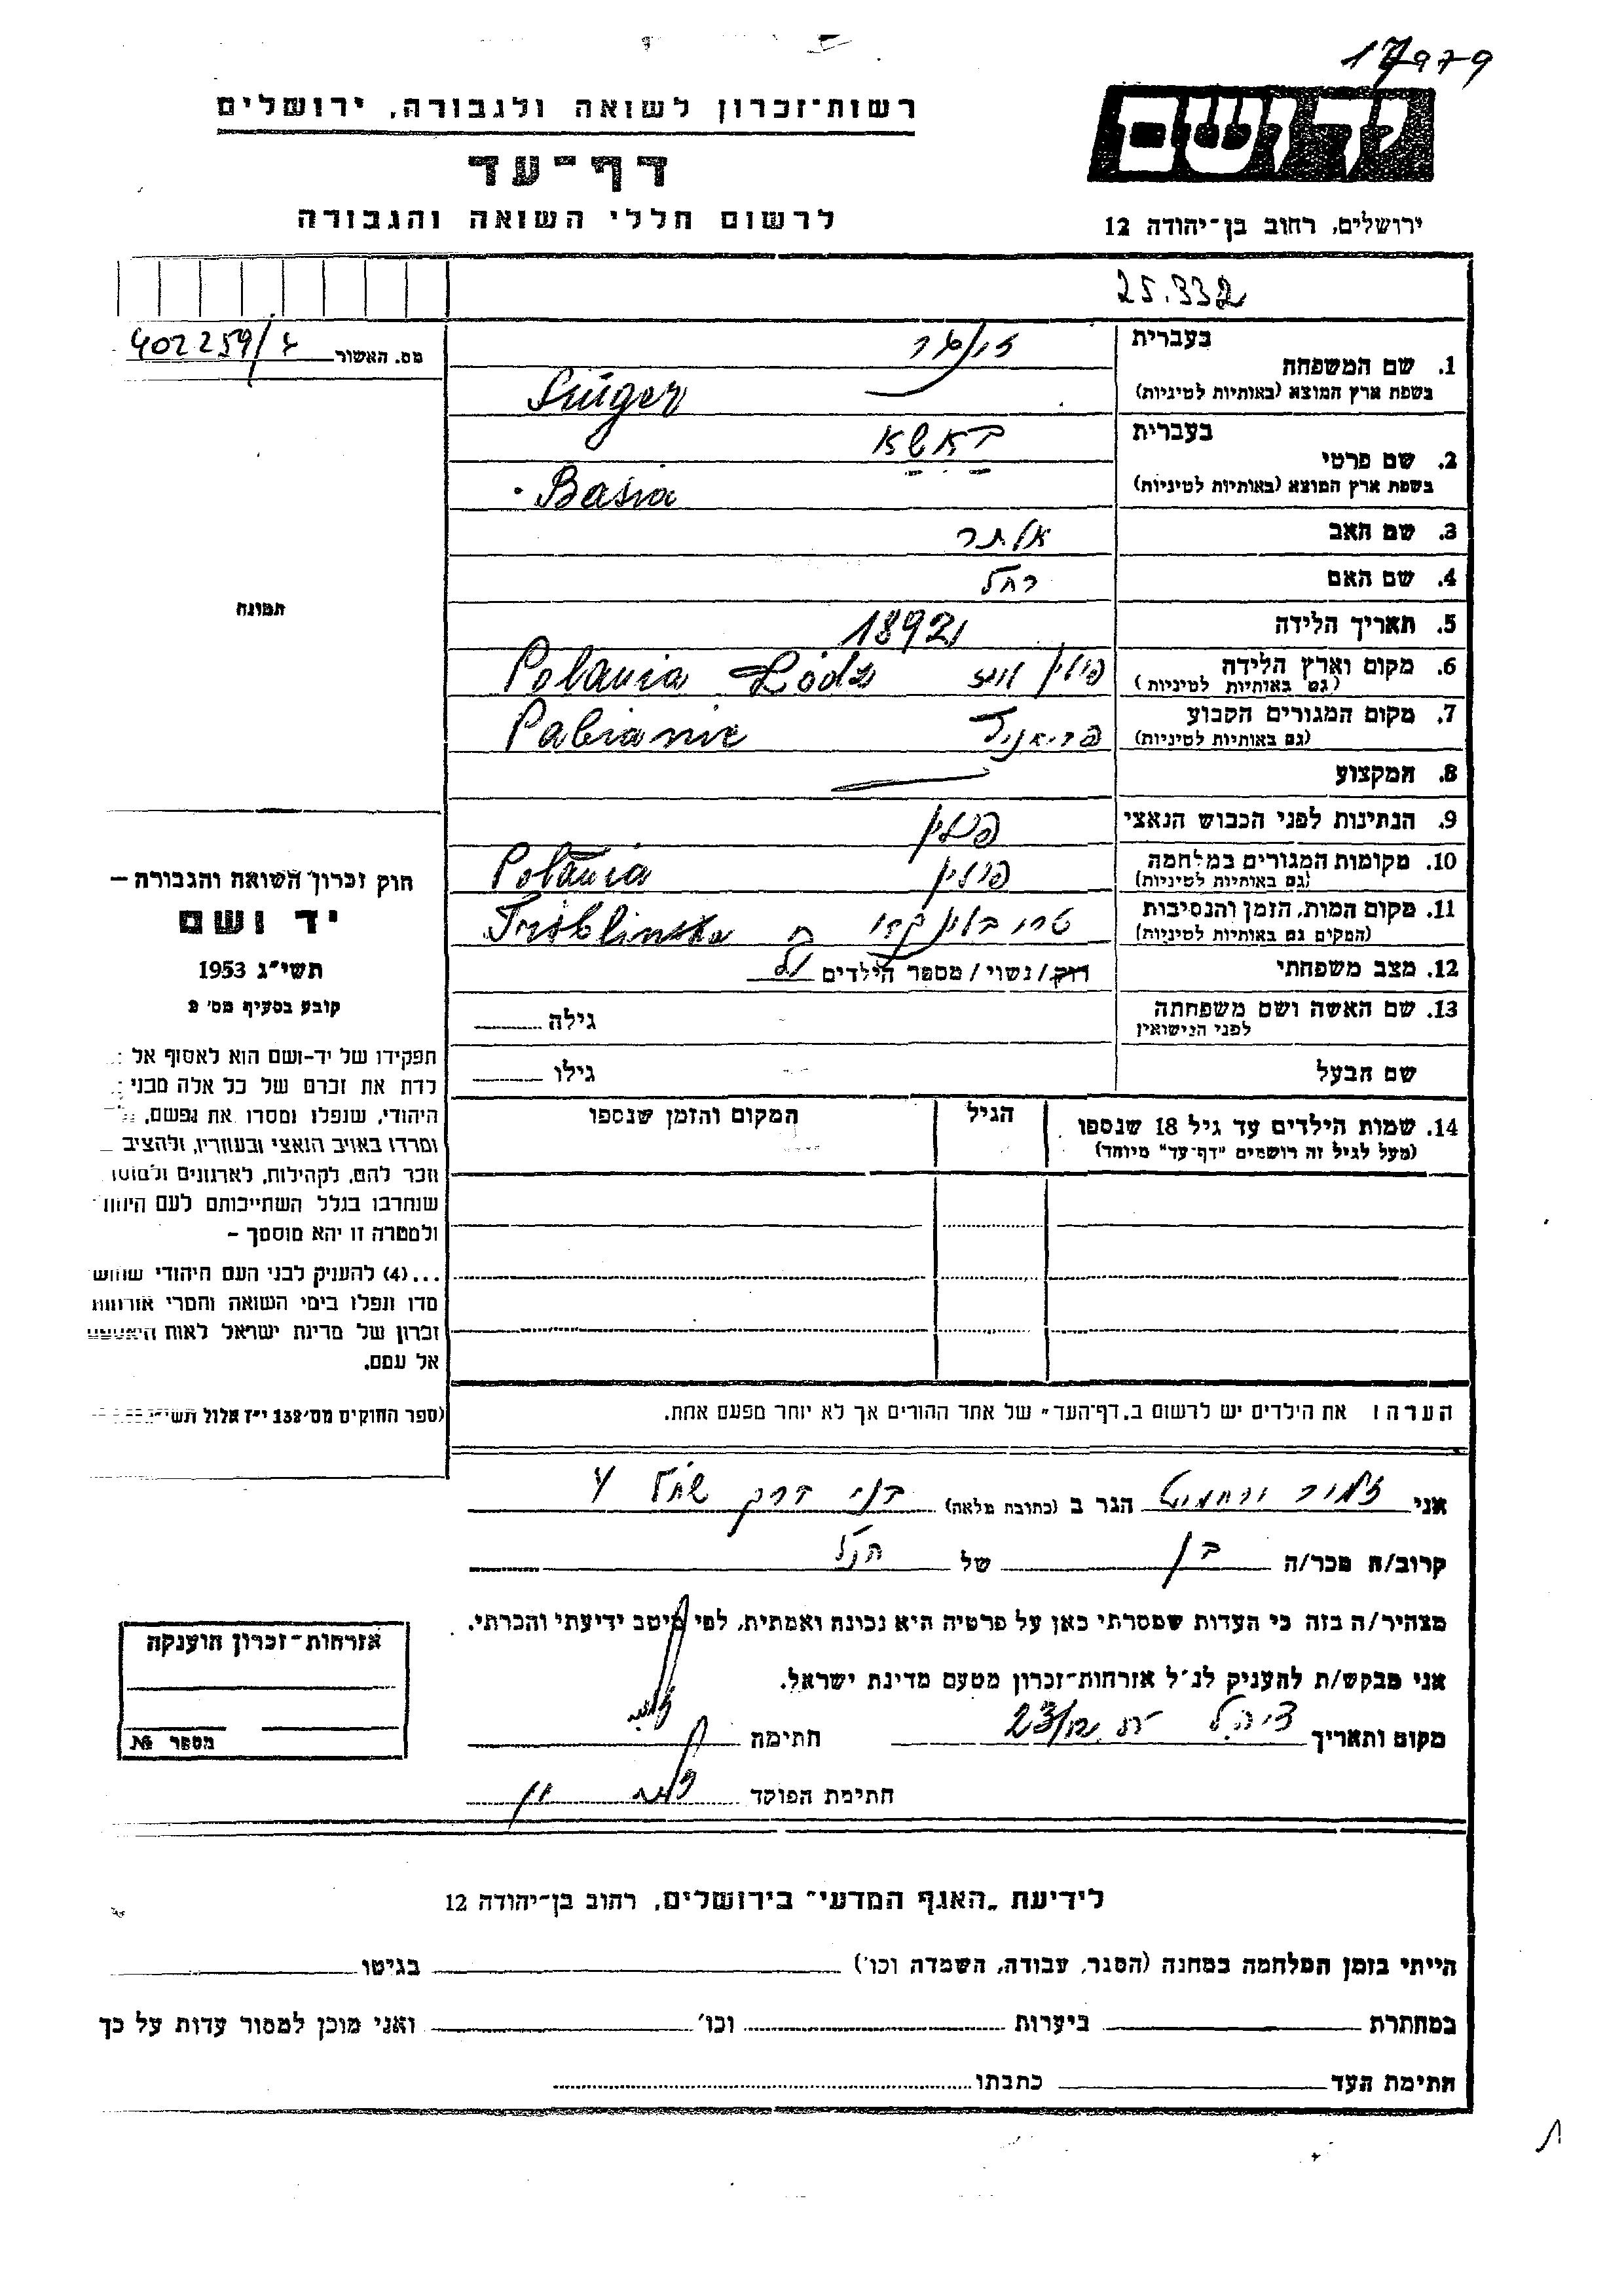 17979
רשות־זכרון לשואה ולגבורה, ירושלים
יד ושם
דף־עד
לרשום חללי השואה והגבורה
ירושלים, רחוב בן־יהודה 12
25.332
מס. האשור 402259/
1. שם המשפחה
בעברית זינגר
בשפת ארץ המוצא (באותיות לטיניות)
2. שם פרטי
בעברית באשא
בשפת ארץ המוצא (באותיות לטיניות) Basia
3. שם האב אלתר
4. שם האם רחל
5. תאריך הלידה 1892
6. מקום וארץ הלידה
(גם באותיות לטיניות) פולין Polania Łódz
7. מקום המגורים הקבוע
(גם באותיות לטיניות) Pabianic
8. המקצוע
9. הנתינות לפני הכבוש הנאצי פולין
10. מקומות המגורים במלחמה
(גם באותיות לטיניות) פולין Polania
11. מקום המות, הזמן והנסיבות
(המקום גם באותיות לטיניות)
12. מצב משפחתי רווק / נשוי / מספר הילדים
13. שם האשה ושם משפחתה
לפני הנישואין
גילה
שם הבעל גילו
14. שמות הילדים עד גיל 18 שנספו
(מעל לגיל זה רושמים "דף־עד" מיוחד)
הגיל
המקום והזמן שנספו
הערה: את הילדים יש לרשום ב„דף־העד" של אחד ההורים אך לא יותר מפעם אחת.
תמונה
חוק זכרון השואה והגבורה –
יד ושם
תשי"ג 1953
קובע בסעיף מס' 2
תפקידו של יד-ושם הוא לאסוף אל
לדת את זכרם של כל אלה מבני
היהודי, שנפלו ומסרו את נפשם,
ומרדו באויב הנאצי ובעוזריו, ולהציב
וזכר להם, לקהילות, לארגונים ולמוסד
שנחרבו בגלל השתייכותם לעם היהוד
ולמטרה זו יהא מוסמך –
...(4) להעניק לבני העם היהודי שהוש
מדו ונפלו בימי השואה והמרי אזרחות
זכרון של מדינת ישראל לאות היאספם
אל עמם.
(ספר החוקים מס' 132 י"ז אלול תשי"ג
אני הגר ב (כתובת מלאה) בני ברק 4
קרוב/ה מכר/ה בן של הנ"ל
מצהיר/ה בזה כי העדות שמסרתי כאן על פרטיה היא נכונה ואמתית, לפי מיטב ידיעתי והכרתי.
אני מבקש/ת להעניק לנ"ל אזרחות־זכרון מטעם מדינת ישראל.
מקום ותאריך 23/12 חתימה
חתימת הפוקד
אזרחות־זכרון הוענקה
מספר №
לידיעת „האגף המדעי" בירושלים, רחוב בן־יהודה 12
הייתי בזמן המלחמה במחנה (הסגר, עבודה, השמדה וכו') בגיטו
במחתרת ביערות וכו' ואני מוכן למסור עדות על כך
חתימת העד כתבתו